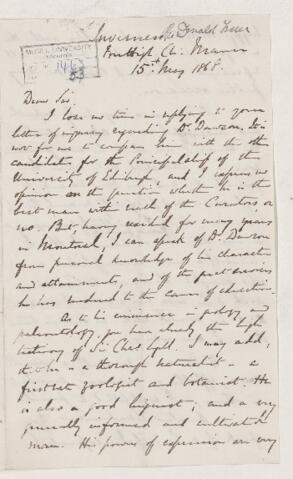 McGILL UNIVERSITY
ARCHIVES
Inverness
Donald Fraser
Manse
15th May 1868.
Dear Sir
I lose no time in replying to your
letter of inquiry regarding Dr. Dawson. It is
not for me to compare him with the other
candidates for the Principalship of the
University of Edinburgh, and I express no
opinion on the question whether he is the
best man with much of the Curators or
no. But, having resided for many years
in Montreal, I can speak of Dr. Dawson
from personal knowledge of his character
and attainments, and of the great services
he has rendered to the cause of education.
As to his eminence in geology and
palaeontology, you have already the high
testimony of Sir Chas Lyell. I may add,
he is a thorough naturalist - a
first-rate zoologist and botanist. He
is also a good linguist; and a very
generally informed and cultivated
man. His powers of expression are very